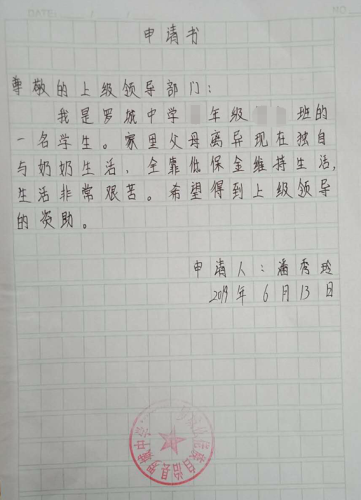 DATE
NO.
申请书
尊敬的上级领导部门：
我是罗城中学 年级 班的
一名学生。家里父母离异现在独自
与奶奶生活，全靠低保金维持生活，
生活非常艰苦。希望得到上级领导
的资助。
申请人：潘秀玲
2019年6月13日